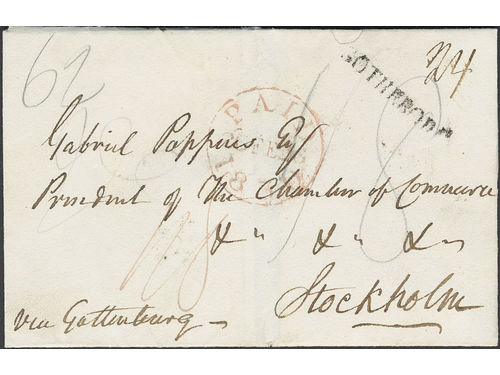 62
24
GOTHEBORG
PAID
Gabriel Poppius Esqr
President of The Chamber of Commerce
& " & " & "
Stockholm
via Gottenburg